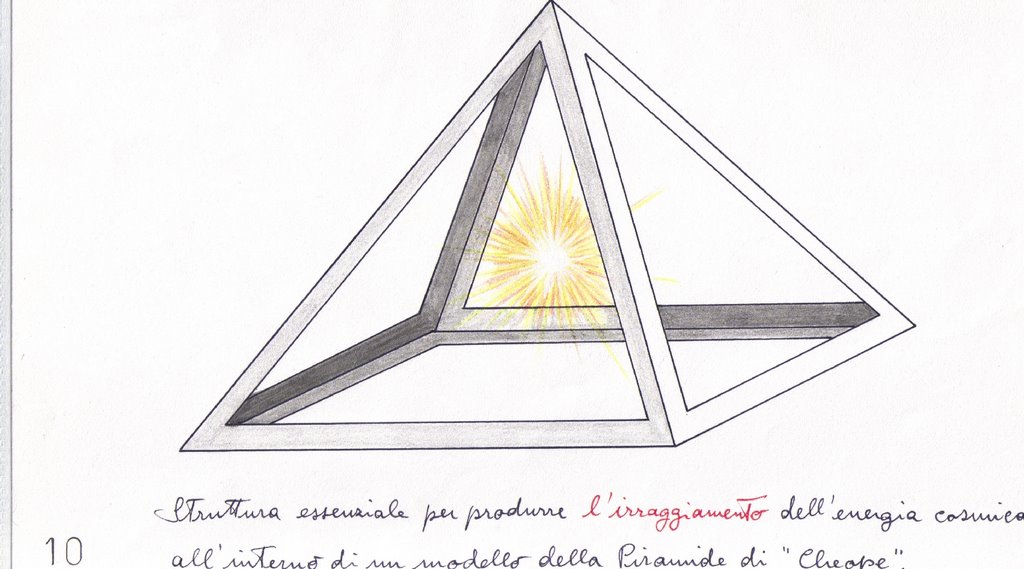 Struttura essenziale per produrre l'irraggiamento dell'energia cosmica
10
all'interno di un modello della Piramide di "Cheope".